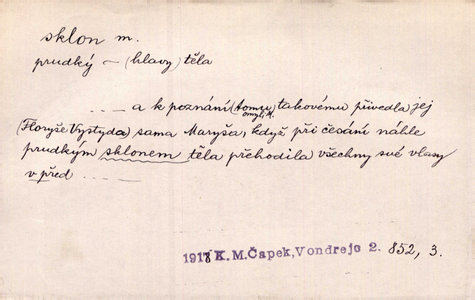 sklon m.
prudký — (hlavy) těla
.... — a k poznání (tomu takovému přivedla jej
omylu,
(Floryše Vystyda) sama Maryša, když při česání náhle
prudkým sklonem těla přehodila všechny své vlasy
v před ....
1918 K.M.Čapek, Vondrejc 2. 852, 3.